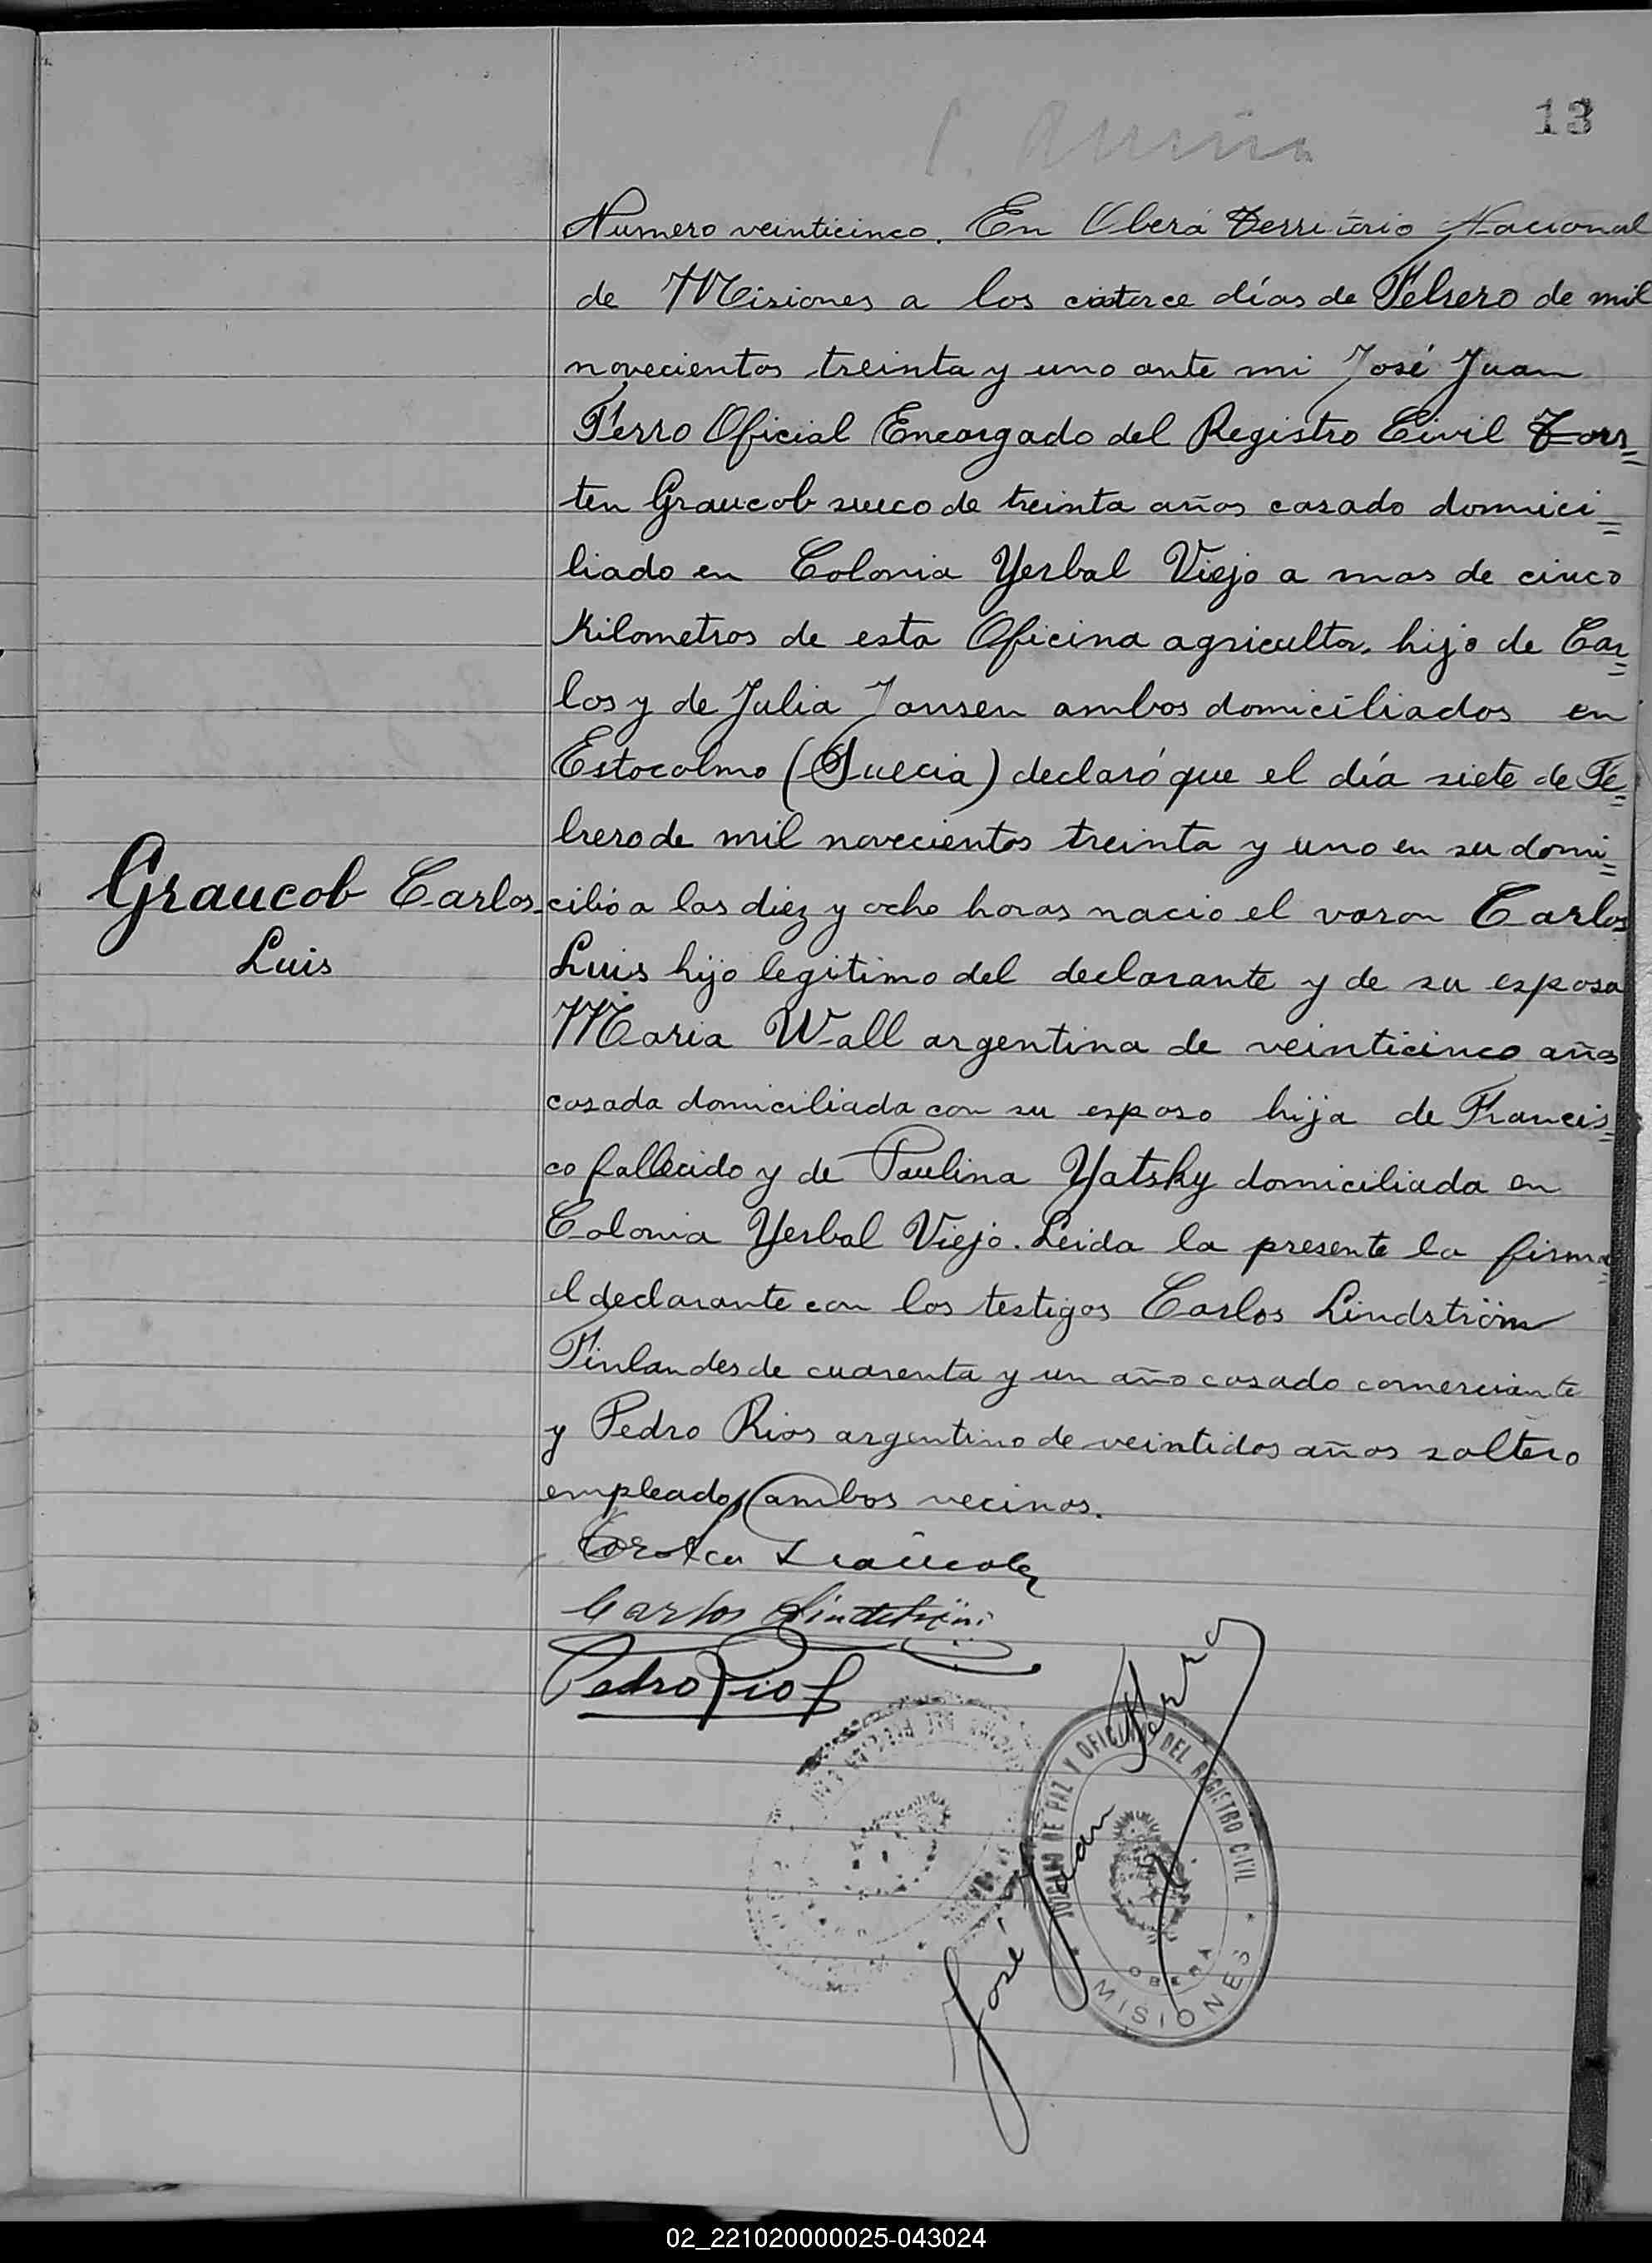 13
Numero veinticinco. En Oberá Territorio Nacional
de Misiones a los catorce días de Febrero de mil
novecientos treinta y uno ante mi José Juan
Ferro Oficial Encargado del Registro Civil Tors=
ten Graucob sueco de treinta años casado domici=
liado en Colonia Yerbal Viejo a mas de cinco
Kilometros de esta Oficina agricultor, hijo de Car=
los y de Julia Jansen ambos domiciliados en
Estocolmo (Suecia) declaró que el día siete de Fe=
brero de mil novecientos treinta y uno en su domi=
Graucob Carlos
Luis
cilio a las diez y ocho horas nacio el varon Carlos
Luis hijo legitimo del declarante y de su esposa
Maria Wall argentina de veinticinco años
casada domiciliada con su esposo hija de Francis=
co fallecido y de Paulina Yatsky domiciliada en
Colonia Yerbal Viejo. Leida la presente la firma=
el declarante con los testigos Carlos Lindström
Finlandes de cuarenta y un año casado comerciante
y Pedro Rios argentino de veintidos años soltero
empleado, ambos vecinos.
Torsten Graucob
Carlos Lindström
Pedro Rios
José Juan Ferro
JUZGADO DE PAZ Y OFICINA DEL REGISTRO CIVIL
OBERA
MISIONES
02_221020000025-043024